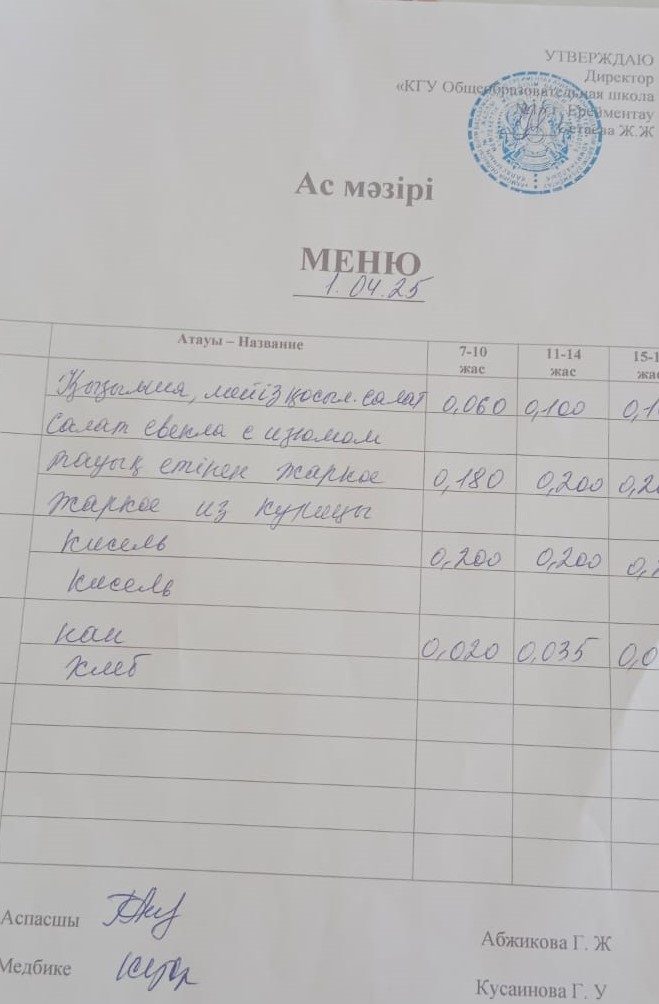 УТВЕРЖДАЮ
Директор
«КГУ Общеобразовательная школа
г. Ерейментау
Ж.Ж
Ас мәзірі
МЕНЮ
1.04.25
Атауы – Название 7-10 жас 11-14 жас 15-1 жас
Қызылша, мейіз қосыл. салат 0,060 0,100 0,1
Салат свекла с изюмом
тауық етінен жаркое 0,180 0,200 0,20
жаркое из курицы
кисель 0,200 0,200 0,2
кисель
нан 0,020 0,035 0,0
хлеб
Аспасшы Абжикова Г. Ж
Медбике Кусаинова Г. У